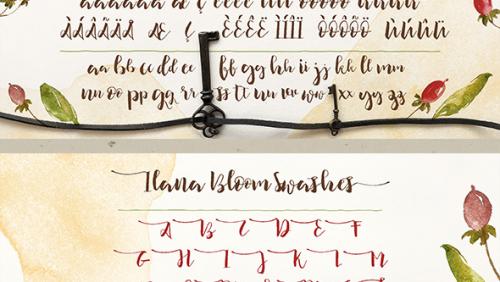 ÀÁÂÃÄÅ Æ Ç ÈÉÊË ÌÍÎÏ ÒÓÔÕÖ ÙÚÛÜ
aa bb cc dd ee ff gg hh ii jj kk ll mm
nn oo pp qq rr ss tt uu vv ww xx yy zz
Ilana Bloom Swashes
A B C D E F
G H I J K L M